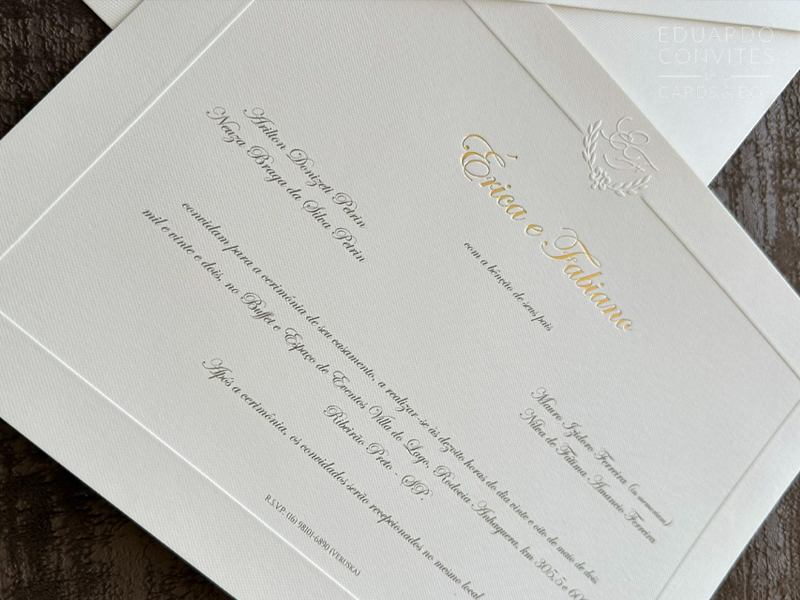 EDUARDO
CONVITES
CARDS & CO.
EF
Érica e Fabiano
com a bênção de seus pais
Arilton Donizeti Petrin
Neuza Braga da Silva Petrin
Mauro Izidoro Ferreira (in memorian)
Nilva de Fátima Amancio Ferreira
convidam para a cerimônia de seu casamento, a realizar-se às dezoito horas do dia vinte e oito de maio de dois
mil e vinte e dois, no Buffet e Espaço de Eventos Villa do Lago, Rodovia Anhaguera, km 305,5 e 60
Ribeirão Preto - SP.
Após a cerimônia, os convidados serão recepcionados no mesmo local.
R.S.V.P. (16) 98101-6890 (VERUSKA)